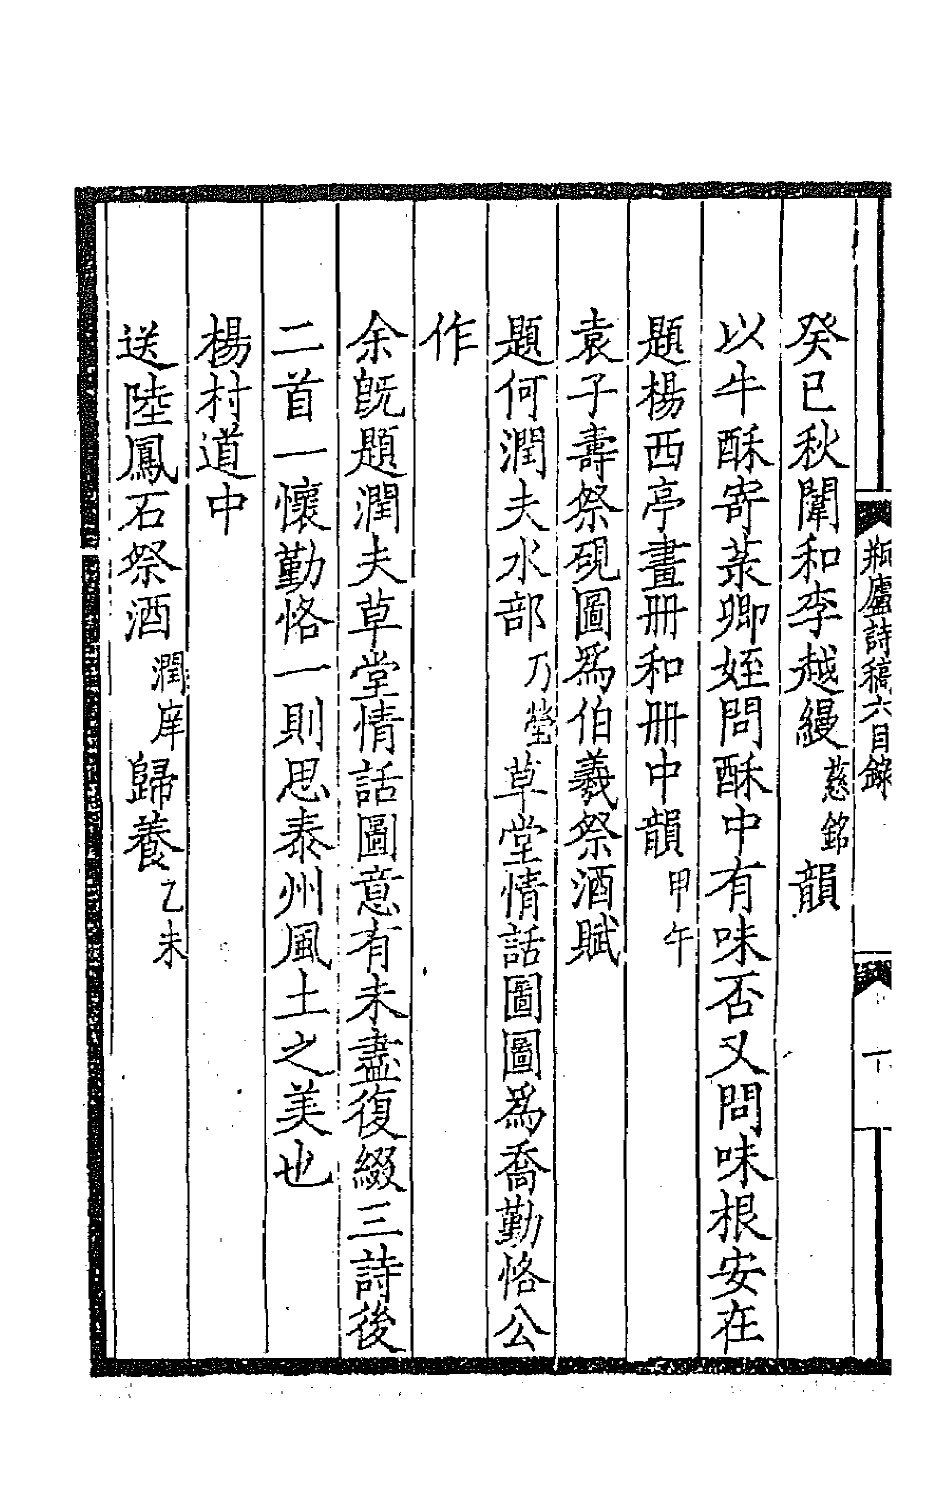 瓶廬詩稿六目錄
癸巳秋闈和李越縵慈銘韻
以牛酥寄菉卿姪問酥中有味否又問味根安在
題楊西亭畫冊和冊中韻甲午
袁子壽祭硯圖爲伯羲祭酒賦
題何潤夫水部乃瑩草堂情話圖圖爲喬勤恪公
作
余旣題潤夫草堂情話圖意有未盡復綴三詩後
二首一懷勤恪一則思泰州風土之美也
楊村道中
送陸鳳石祭酒潤庠歸養乙未